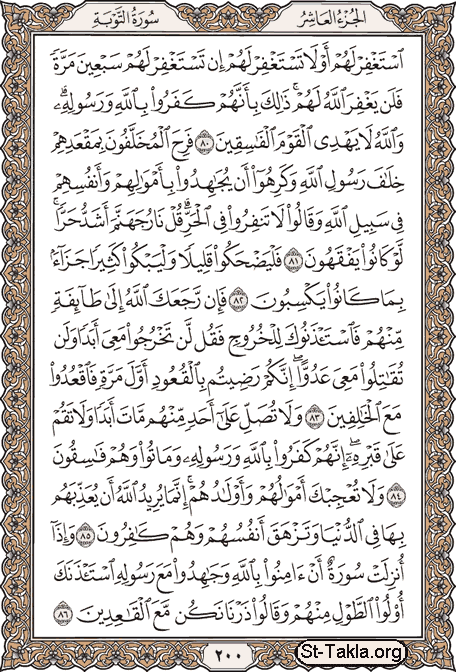 الجزء العاشر
سورة التوبة
ٱسْتَغْفِرْ لَهُمْ أَوْ لَا تَسْتَغْفِرْ لَهُمْ إِن تَسْتَغْفِرْ لَهُمْ سَبْعِينَ مَرَّةً
فَلَن يَغْفِرَ ٱللَّهُ لَهُمْ ۚ ذَٰلِكَ بِأَنَّهُمْ كَفَرُوا۟ بِٱللَّهِ وَرَسُولِهِۦ ۗ
وَٱللَّهُ لَا يَهْدِى ٱلْقَوْمَ ٱلْفَٰسِقِينَ ٨٠ فَرِحَ ٱلْمُخَلَّفُونَ بِمَقْعَدِهِمْ
خِلَٰفَ رَسُولِ ٱللَّهِ وَكَرِهُوٓا۟ أَن يُجَٰهِدُوا۟ بِأَمْوَٰلِهِمْ وَأَنفُسِهِمْ
فِى سَبِيلِ ٱللَّهِ وَقَالُوا۟ لَا تَنفِرُوا۟ فِى ٱلْحَرِّ ۗ قُلْ نَارُ جَهَنَّمَ أَشَدُّ حَرًّا ۚ
لَّوْ كَانُوا۟ يَفْقَهُونَ ٨١ فَلْيَضْحَكُوا۟ قَلِيلًا وَلْيَبْكُوا۟ كَثِيرًا جَزَآءًۢ
بِمَا كَانُوا۟ يَكْسِبُونَ ٨٢ فَإِن رَّجَعَكَ ٱللَّهُ إِلَىٰ طَآئِفَةٍ
مِّنْهُمْ فَٱسْتَـْٔذَنُوكَ لِلْخُرُوجِ فَقُل لَّن تَخْرُجُوا۟ مَعِىَ أَبَدًا وَلَن
تُقَٰتِلُوا۟ مَعِىَ عَدُوًّا ۖ إِنَّكُمْ رَضِيتُم بِٱلْقُعُودِ أَوَّلَ مَرَّةٍ فَٱقْعُدُوا۟
مَعَ ٱلْخَٰلِفِينَ ٨٣ وَلَا تُصَلِّ عَلَىٰٓ أَحَدٍ مِّنْهُم مَّاتَ أَبَدًا وَلَا تَقُمْ
عَلَىٰ قَبْرِهِۦٓ ۖ إِنَّهُمْ كَفَرُوا۟ بِٱللَّهِ وَرَسُولِهِۦ وَمَاتُوا۟ وَهُمْ فَٰسِقُونَ
٨٤ وَلَا تُعْجِبْكَ أَمْوَٰلُهُمْ وَأَوْلَٰدُهُمْ ۚ إِنَّمَا يُرِيدُ ٱللَّهُ أَن يُعَذِّبَهُم
بِهَا فِى ٱلدُّنْيَا وَتَزْهَقَ أَنفُسُهُمْ وَهُمْ كَٰفِرُونَ ٨٥ وَإِذَآ
أُنزِلَتْ سُورَةٌ أَنْ ءَامِنُوا۟ بِٱللَّهِ وَجَٰهِدُوا۟ مَعَ رَسُولِهِ ٱسْتَـْٔذَنَكَ
أُو۟لُوا۟ ٱلطَّوْلِ مِنْهُمْ وَقَالُوا۟ ذَرْنَا نَكُن مَّعَ ٱلْقَٰعِدِينَ ٨٦
٢٠٠
St-Takla.org